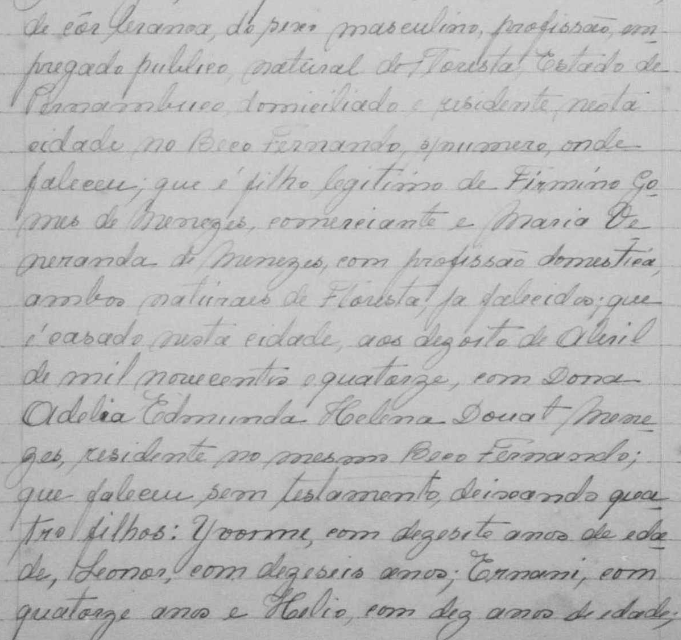 de côr branca, do sexo masculino, profissão, em
pregado publico, natural de Floresta, Estado de
Pernambuco, domiciliado e residente, nesta
cidade no Beco Fernando, s/numero, onde
faleceu; que é filho legitimo de Firmino Go
mes de Menezes, comerciante e Maria Ve
neranda de Menezes, com profissão domestica,
ambos naturaes de Floresta, ja falecidos; que
é casado nesta cidade, aos dezoito de Abril
de mil novecentos e quatorze, com Dona
Adelia Edmunda Helena Douat Mene
zes, residente no mesmo Beco Fernando;
que faleceu sem testamento, deixando qua
tro filhos: Yvonne, com dezesete anos de eda
de, Leonor, com dezeseis anos; Ernani, com
quatorze anos e Helio, com dez anos de edade;